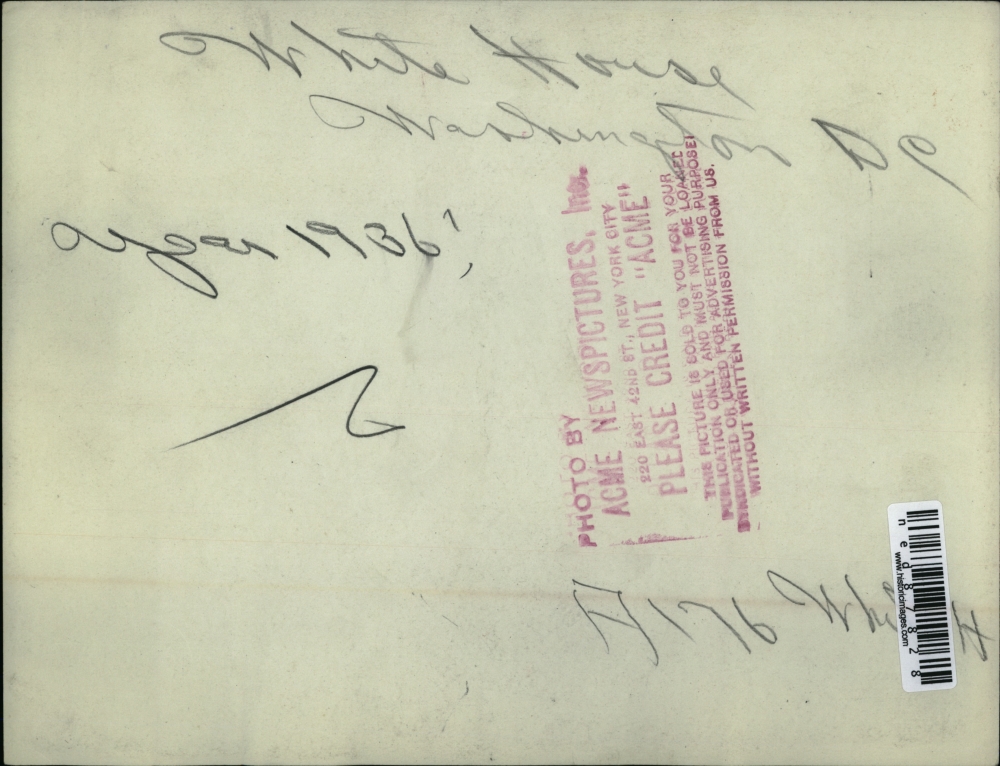 White House
Washington DC
year 1936
PHOTO BY
ACME NEWSPICTURES, Inc.
220 EAST 42ND ST., NEW YORK CITY
PLEASE CREDIT "ACME"
THIS PICTURE IS SOLD TO YOU FOR YOUR
PUBLICATION ONLY AND MUST NOT BE LOANED
SYNDICATED OR USED FOR ADVERTISING PURPOSES
WITHOUT WRITTEN PERMISSION FROM US.
176
ned87828
www.historicimages.com